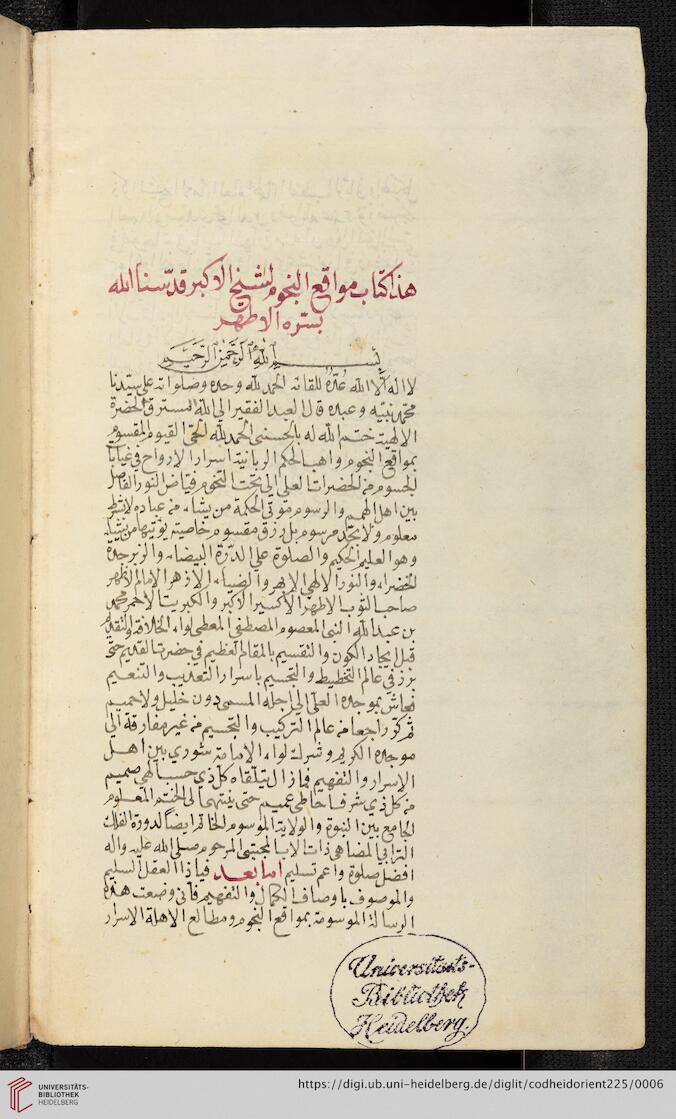 هذا كتاب مواقع النجوم للشيخ الاكبر قدّسنا الله
بسرّه الاطهر
بسم الله الرحمن الرحيم
لا اله الا الله عُدّة للقائه الحمد لله وحده وصلواته على سيّدنا
محمّد نبيّه وعبده قال العبد الفقير الى الله المسترق الحضرة
الالهيّة ختم الله له بالحسنى الحمد لله الحىّ القيوم المقسوم
بمواقع النجوم واهب الحكم الربانية اسرار الارواح في غيابات
الجسوم من الحضرات العلى الى تحت التخوم فيّاض النور الفاصل
بين اهل الهمم والرسوم موتى الحكمة من يشاء من عباده لا لشرط
معلوم ولا بحد مرسوم بل رزق مقسوم خاصية يؤتيها من يشاء
وهو العليم الحكيم والصلوة على الدّرّة البيضاء والزبرجدة
الخضراء والنور الالهى الابهر والضياء الازهر الامام الاظهر
صاحب الثوب الاطهر الاكسير الاكبر والكبريت الاحمر محمّد
بن عبد الله النبى المعصوم المصطفى المعطى لواء الخلافة والتقدم
قبل ايجاد الكون والتقسيم بالمقام العظيم في حضرت القديم حتى
برز في عالم التخطيط والتجسيم باسرار التعذيب والتنعيم
فعاش بموجده العلّى الى اجله المسمى دون خليل ولا حميم
ثم كرّ راجعا من عالم التركيب والتجسيم من غير مفارقة الى
موجده الكريم وترك لواء الامامة شورى بين اهل
الاسرار والتفهيم فما زال يتلقاه كل ذى حسب الهى صميم
من كل ذى شرف احاطى عميم حتى ينتهى الى الختم المعلوم
الجامع بين النبوة والولاية الموسوم الخاتم ايضا لدورة الفلك
الترابى المضاهى ذات الاب المجتبى المرحوم صلى الله عليه واله
افضل صلوة واعم تسليم اما بعد فيا ذا العقل السليم
والموصوف باوصاف الكمال والتفهيم فانى وضعت هذه
الرسالة الموسومة بمواقع النجوم ومطالع الاهلة الاسرار
Universitäts-
Bibliothek
Heidelberg.
UNIVERSITÄTS-
BIBLIOTHEK
HEIDELBERG
https://digi.ub.uni-heidelberg.de/diglit/codheidorient225/0006